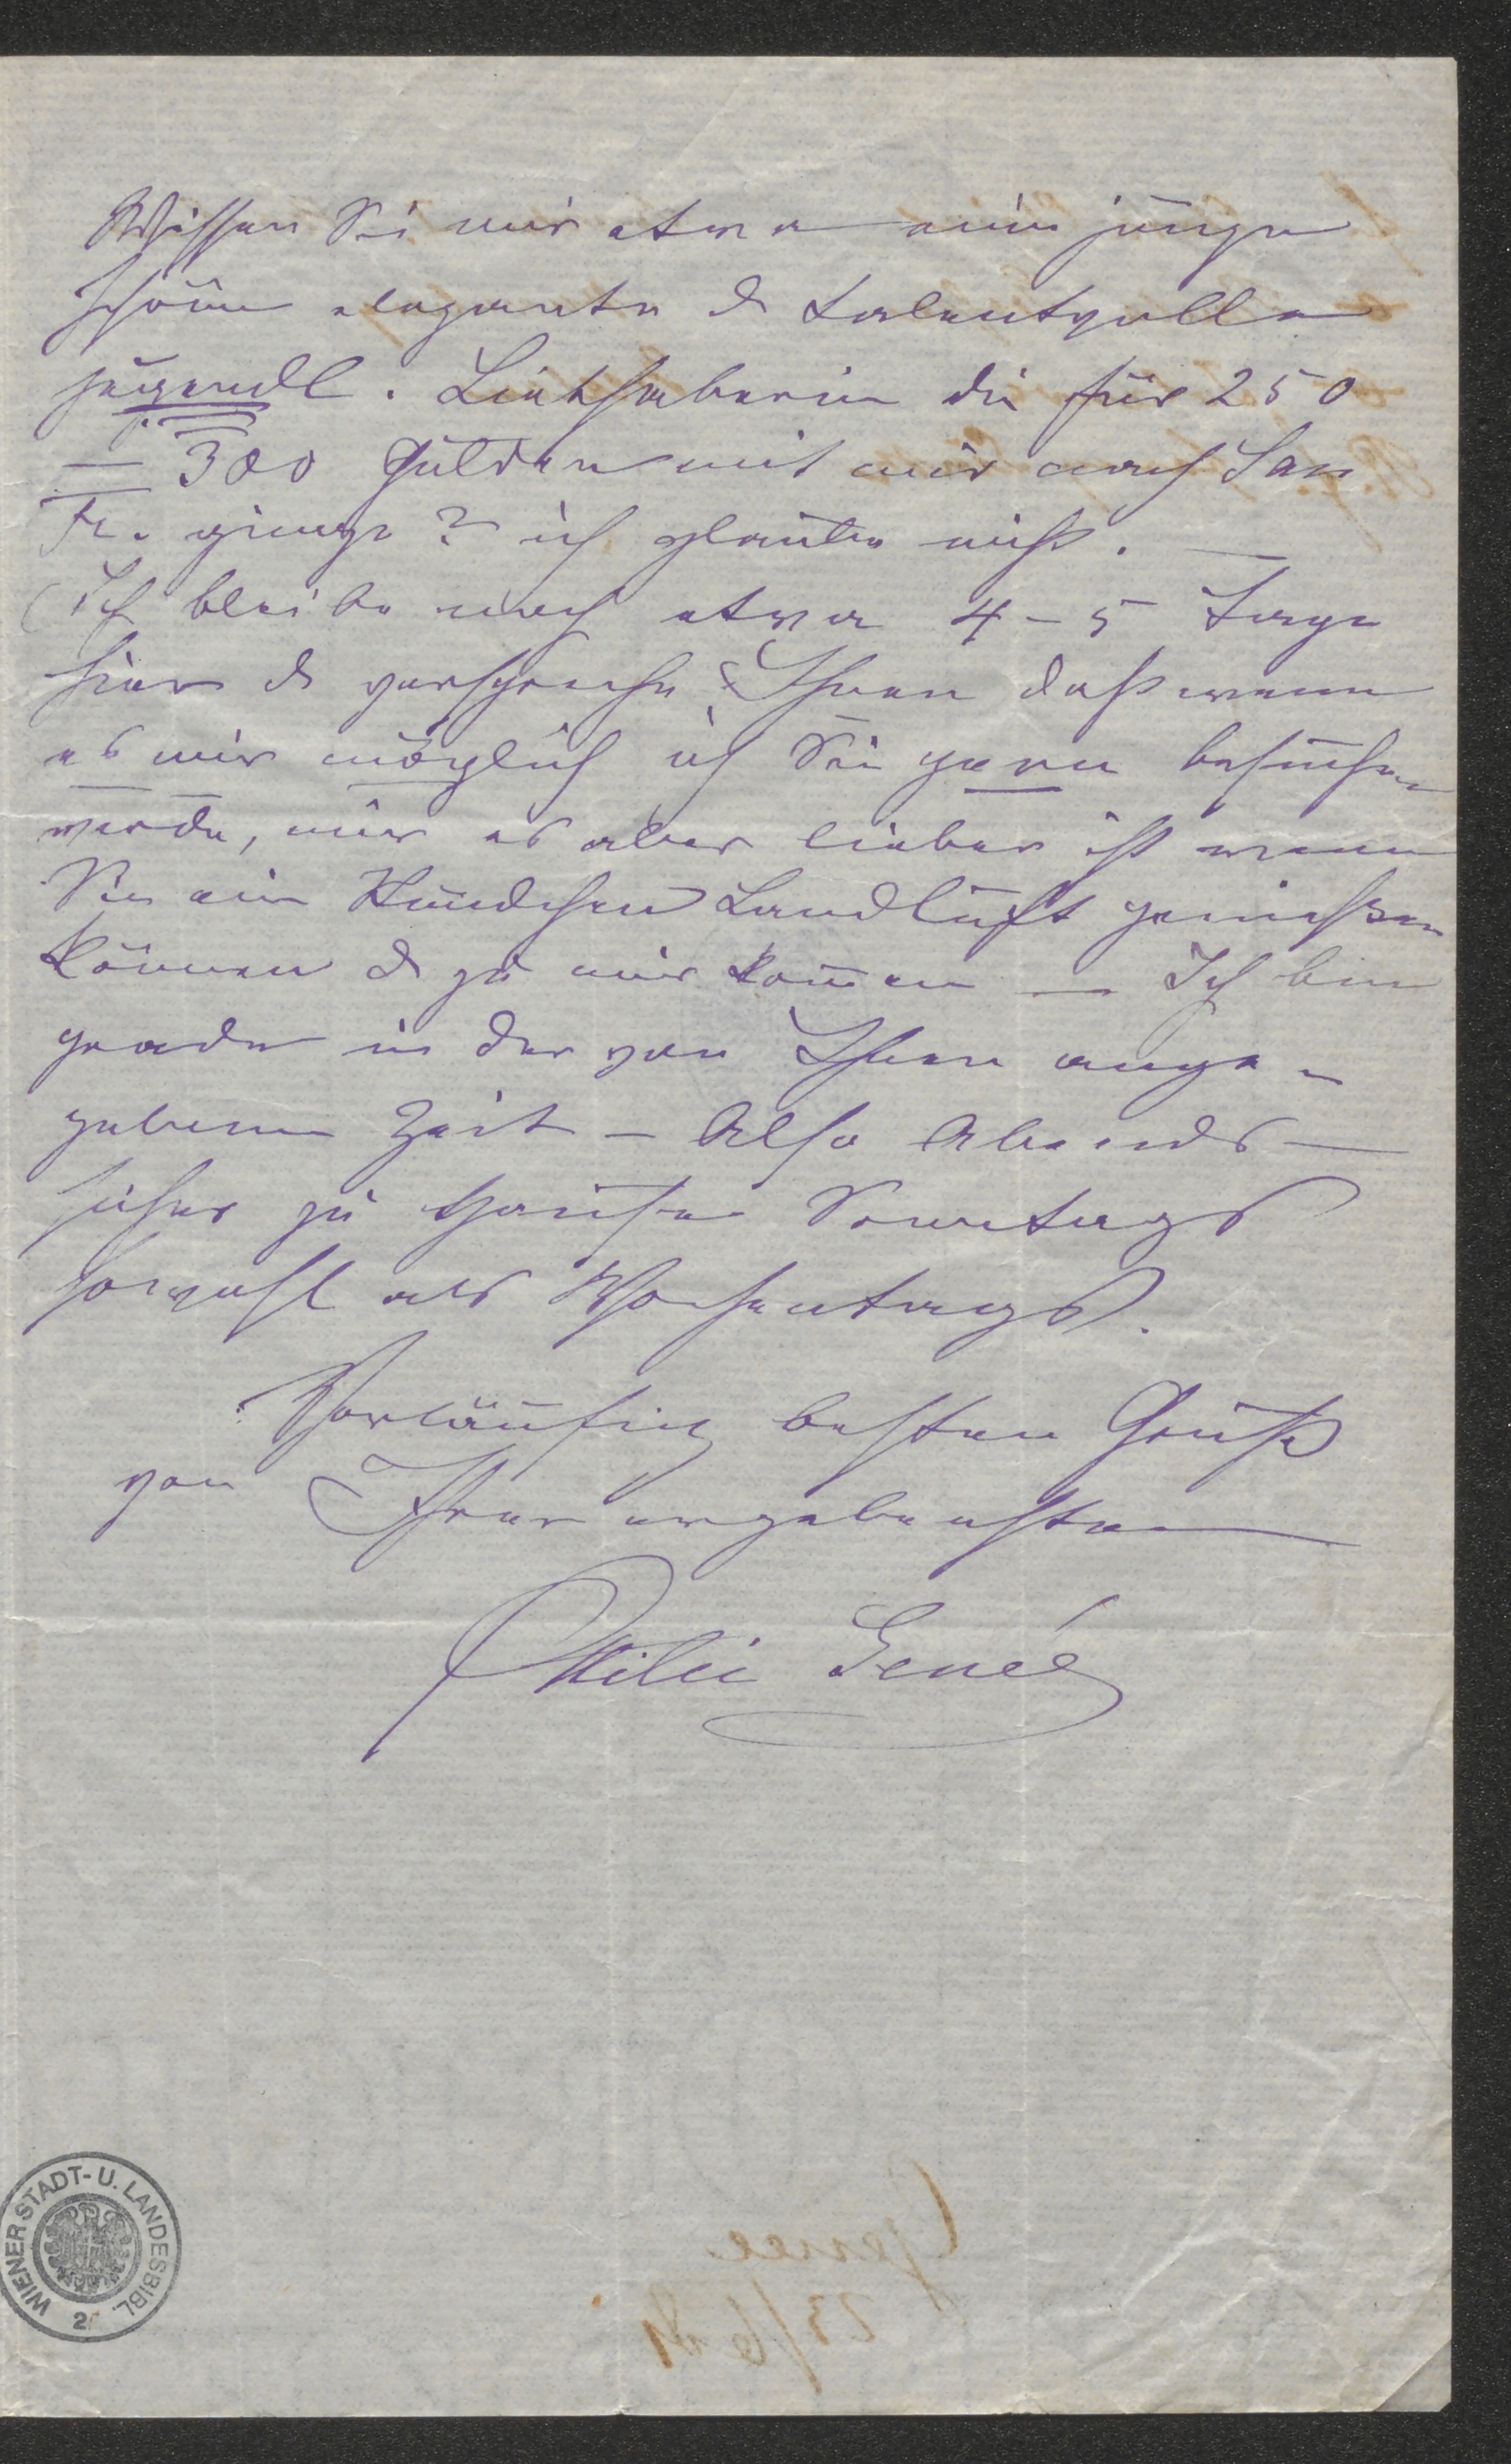 Wissen Sie mir etwa eine junge
schöne elegante & talentvolle
jugendl. Liebhaberin die für 250
– 300 Gulden mit mir nach San
Fr. ginge? ich glaube nicht. –
Ich bleibe noch etwa 4–5 Tage
hier & verspreche Ihnen daß wenn
es mir möglich ich Sie gern besuchen
werde, mir es aber lieber ist wenn
Sie ein Stündchen Landluft genießen
können & zu mir kom̅en — Ich bin
grade in der von Ihnen ange-
gebenen Zeit – Also Abends –
sicher zu Hause Sonntags
sowohl als Wochentags.
Vorläufig besten Gruß
von Ihrer ergebensten
Ottilie Genée
WIENER STADT- U. LANDESBIBL.
2
Genee
23/6 81